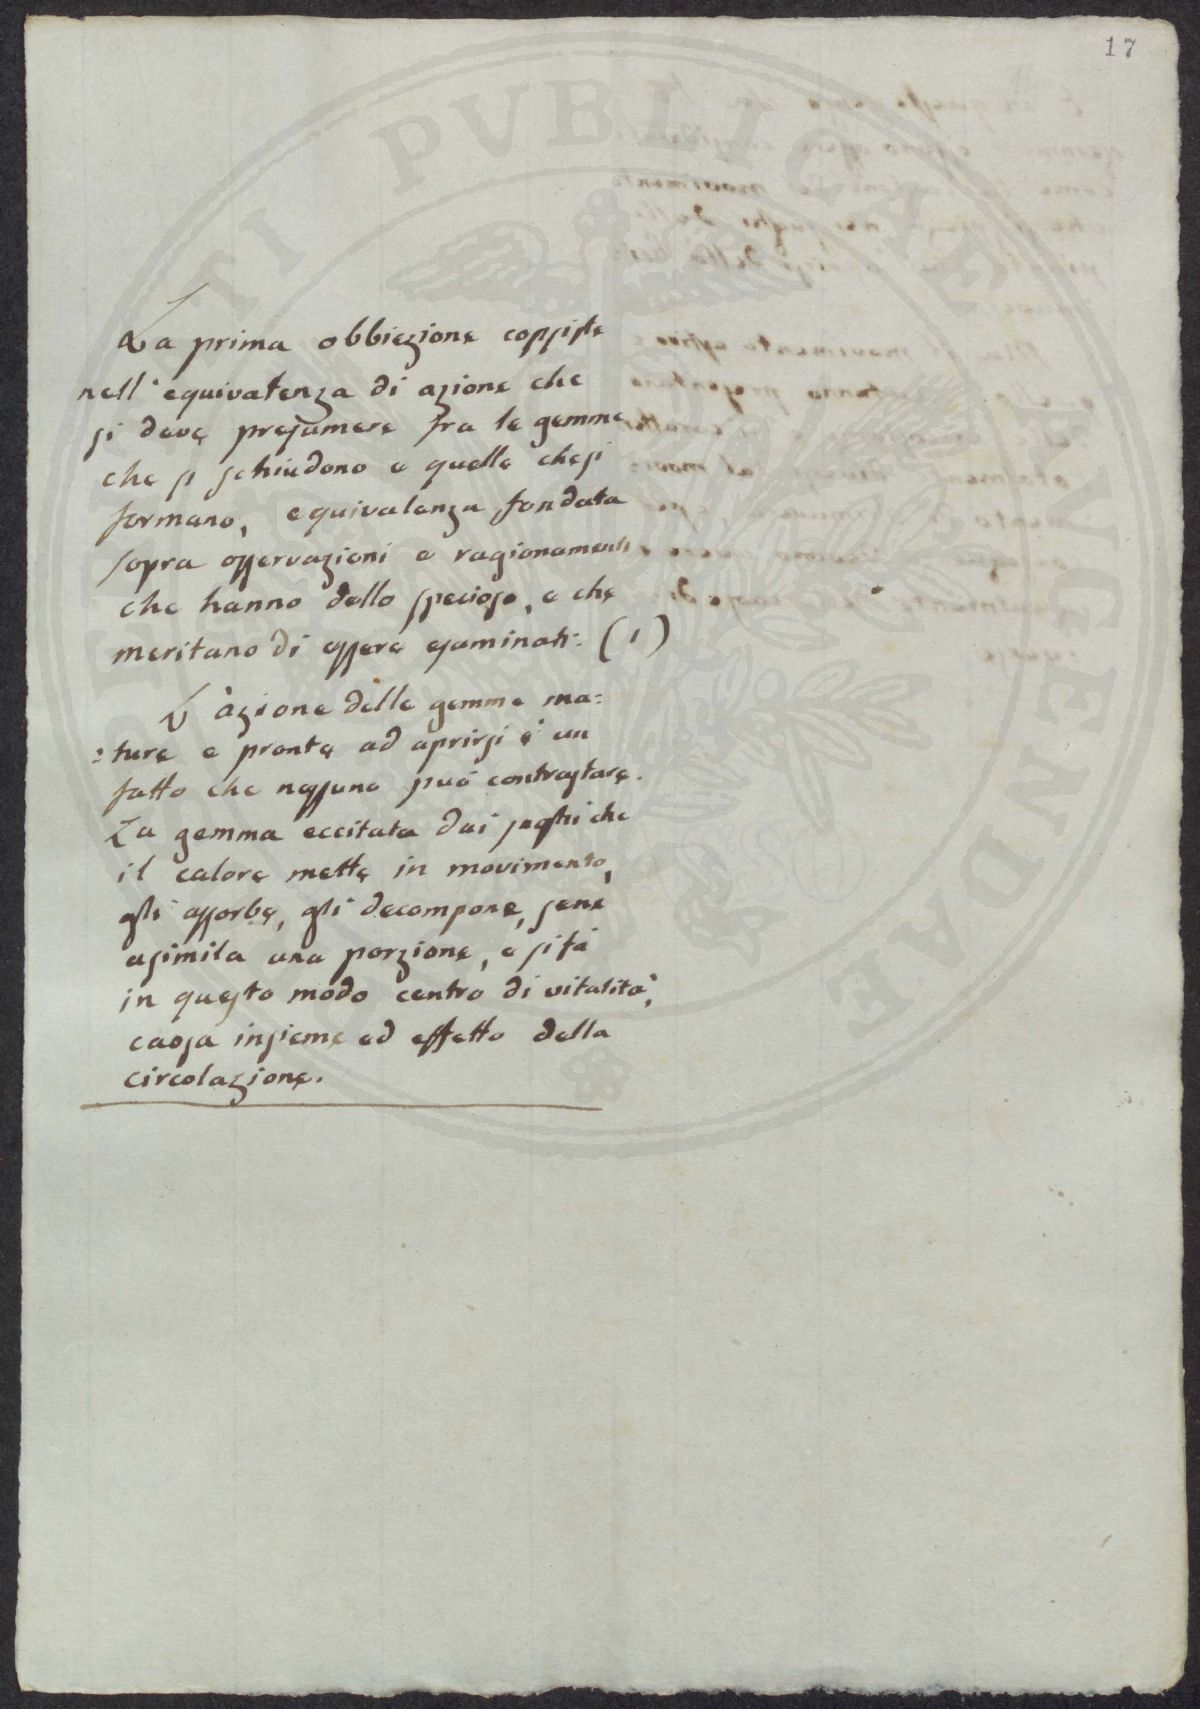 17
La prima obbiezione consiste
nell'equivalenza di azione che
si deve presumere fra le gemme
che si schiudono e quelle chesi
formano, equivalenza fondata
sopra osservazioni e ragionamenti
che hanno dello specioso, e che
meritano di essere esaminati: (1)
L'azione delle gemme ma:
:ture e pronte ad aprirsi è un
fatto che nessuno può contrastare.
La gemma eccitata dai sughi che
il calore mette in movimento,
gli assorbe, gli decompone, sene
asimila una porzione, e si fà
in questo modo centro di vitalità,
caosa insieme ed effetto della
circolazione.